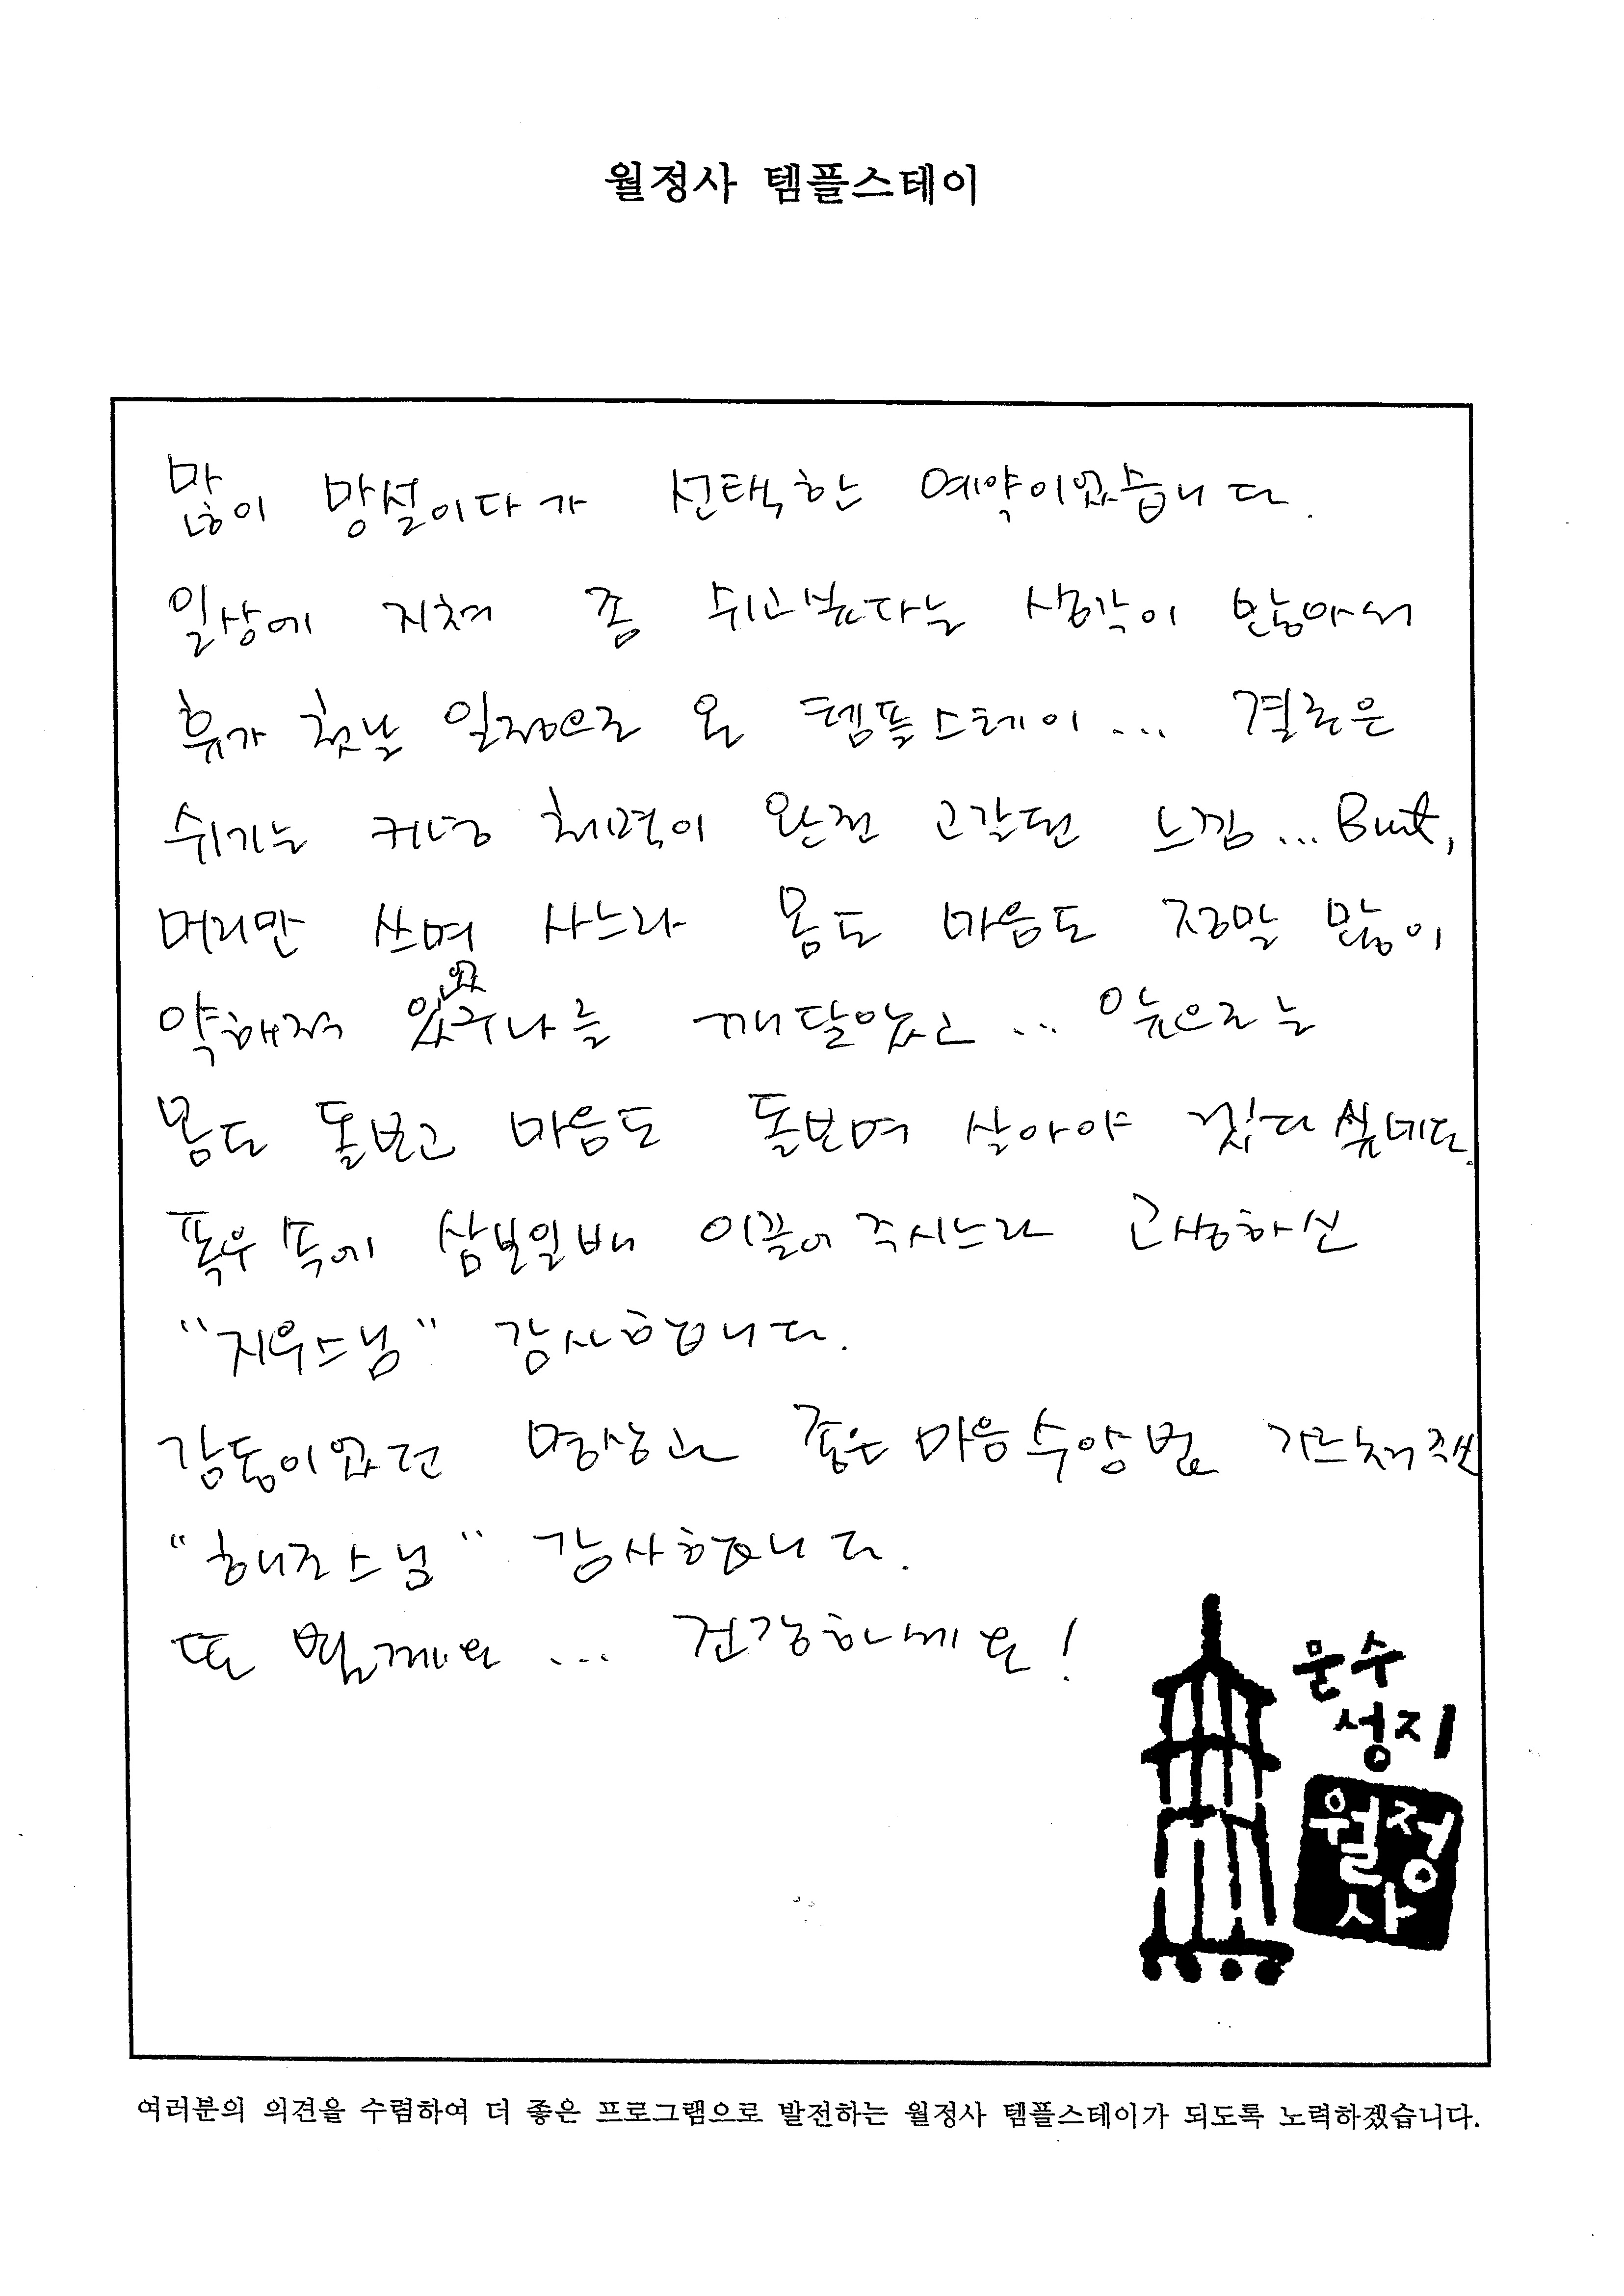 월정사 템플스테이
많이 망설이다가 선택한 예약이었습니다.
일상에 지쳐 좀 쉬고싶다는 생각이 많아서
휴가 첫날 일정으로 온 템플스테이... 결론은
쉬기는 커녕 체력이 완전 고갈된 느낌... But,
머리만 쓰며 사느라 몸도 마음도 정말 많이
약해져 있었구나를 깨달았고... 앞으로는
몸도 돌보고 마음도 돌보며 살아야 겠다 싶네요.
폭우 속에 삼보일배 이끌어 주시느라 고생하신
"지우스님" 감사합니다.
감동이었던 명상과 좋은 마음수양법 가르쳐 주신
"해조스님" 감사합니다.
또 뵐게요... 건강하세요!
문수
성지
월정
사
여러분의 의견을 수렴하여 더 좋은 프로그램으로 발전하는 월정사 템플스테이가 되도록 노력하겠습니다.